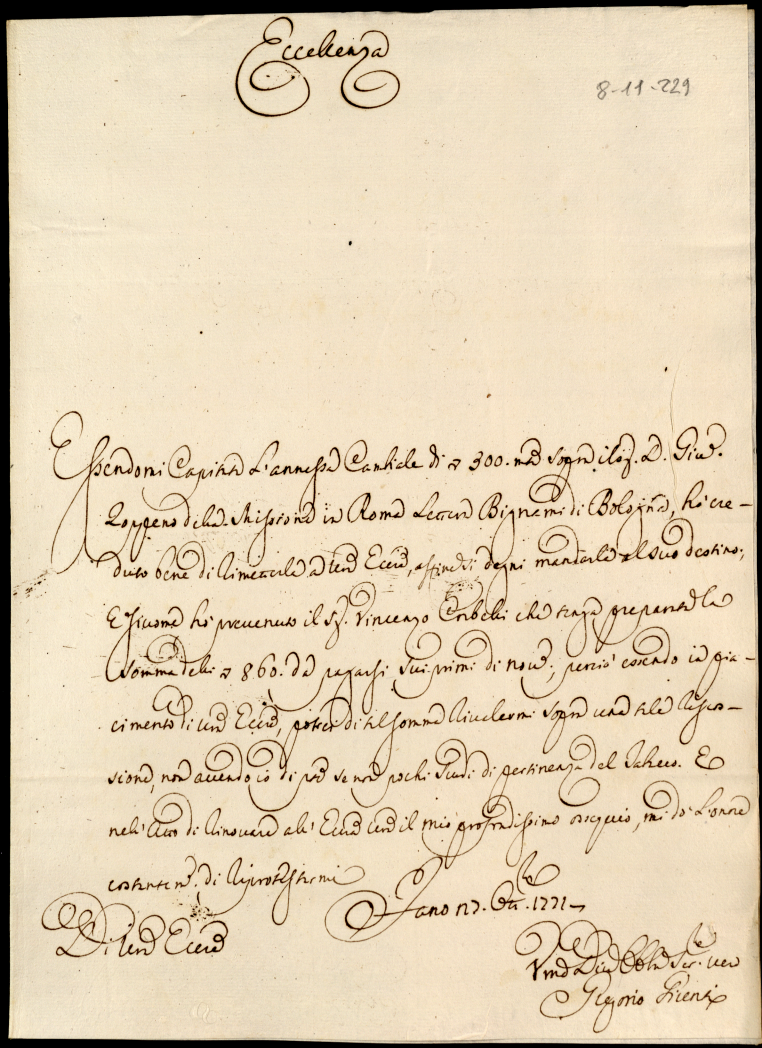 Eccellenza
8-11-229
Essendomi Capitata l'annessa Cambiale di 300. sopra il D. Giu.
della Missione in Roma Lettera Bignami di Bologna, hò cre-
duto bene di rimetterla a Vra Eccza, affine si degni mandarla al suo destino;
E siccome hò prevenuto il Sig. Vincenzo che tenga preparata la
somma delli 860. da pagarsi sui primi di nove, perciò essendo in pia-
cimento di Vra Eccza, potrà di tal somma rivalermi sopra una tale riscos-
sione, non avendo io di più se non pochi scudi di pertinenza del E
nell'atto di rinovare all' Eccza Vra il mio profondissimo ossequio, mi dò l'onore
costantem. di riprotestarmi
Fano 17. Ott. 1771
Di Vra Eccza
Umo Devo Obbmo Ser. vero
Gregorio